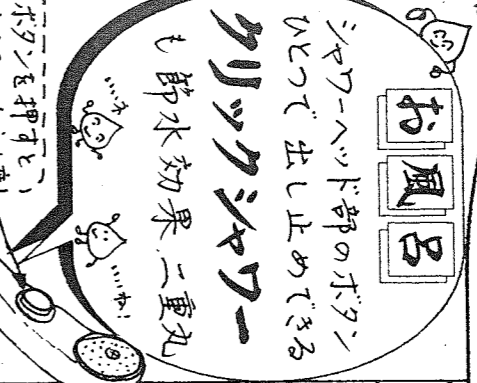 お風呂
シャワーヘッド部のボタン
ひとつで出し止めできる
クリックシャワー
も節水効果二重丸
いいネ
いいね!
ボタンを押すと